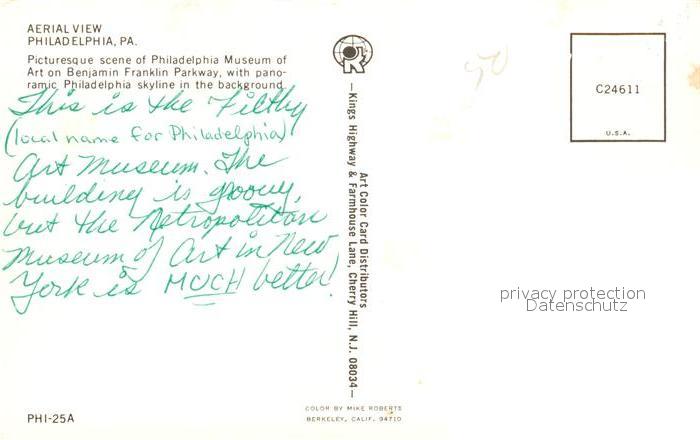 AERIAL VIEW
PHILADELPHIA, PA.
Picturesque scene of Philadelphia Museum of
Art on Benjamin Franklin Parkway, with pano-
ramic Philadelphia skyline in the background.
This is the Filthy
(local name for Philadelphia)
Art Museum. The
building is groovy,
but the Metropolitan
Museum of Art in New
York is MUCH better!
PHI-25A
Art Color Card Distributors
—Kings Highway & Farmhouse Lane, Cherry Hill, N.J. 08034—
COLOR BY MIKE ROBERTS
BERKELEY, CALIF. 94710
C24611
U.S.A.
privacy protection
Datenschutz